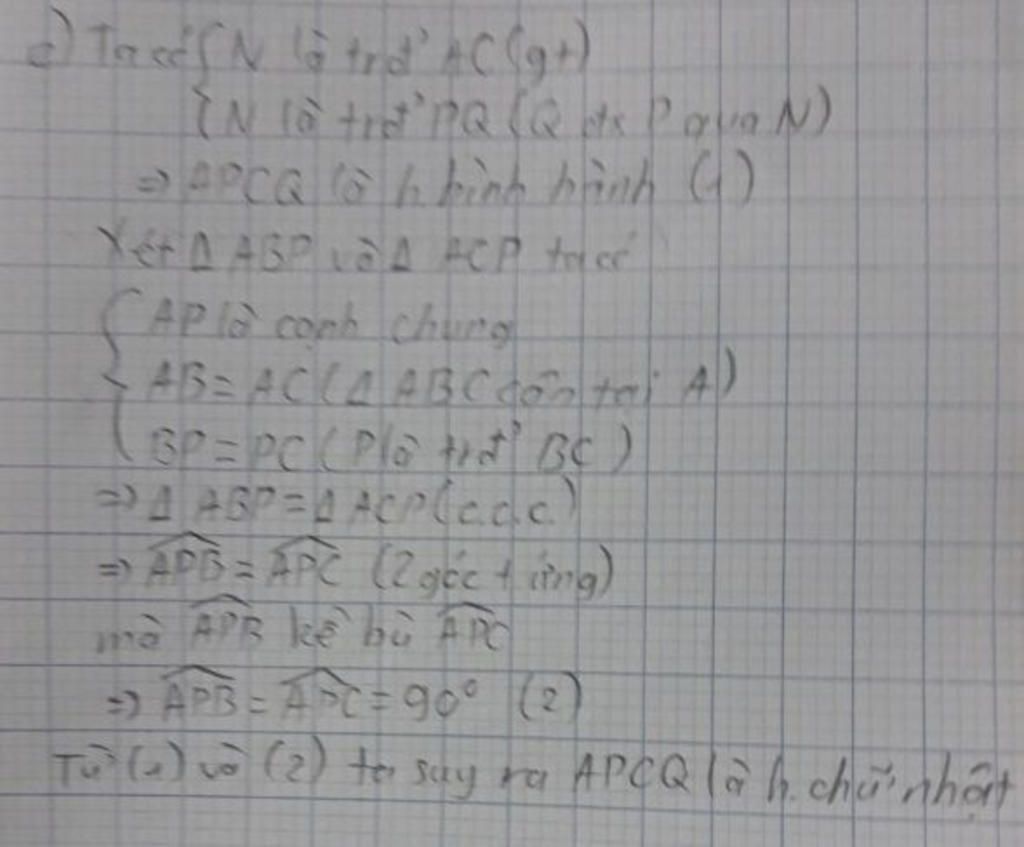 c) Ta có { N là trđ' AC (gt)
{ N là trđ' PQ (Q đx P qua N)
=> APCQ là h. bình hành (1)
Xét Δ ABP và Δ ACP ta có
{ AP là cạnh chung
AB = AC (Δ ABC cân tại A)
BP = PC (P là trđ' BC)
=> Δ ABP = Δ ACP (c.c.c)
=> \widehat{APB} = \widehat{APC} (2 góc t ứng)
mà \widehat{APB} kề bù \widehat{APC}
=> \widehat{APB} = \widehat{APC} = 90° (2)
Từ (1) và (2) ta suy ra APCQ là h. chữ nhật